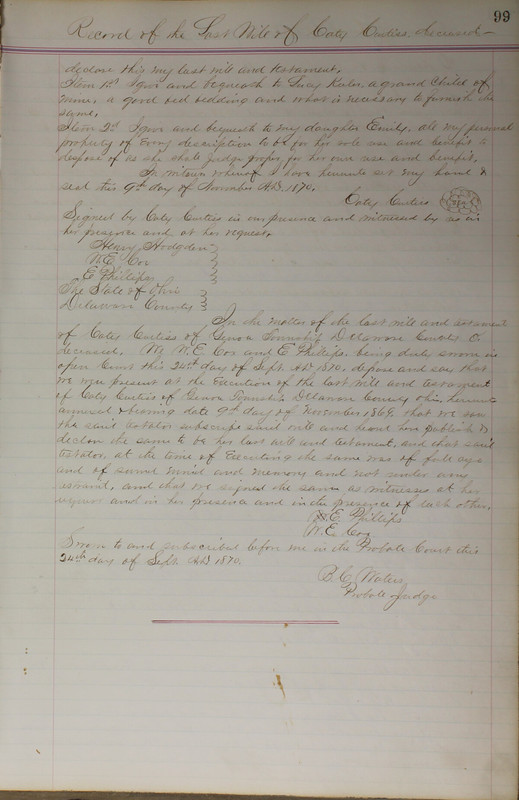 99
Record of the Last Will of Caty Curtiss deceased —
declare this my last will and testament.
Item 1st I give and bequeath to Lucy a grand Child of
mine, a good bed bedding and what is necessary to furnish the
same.
Item 2d I give and bequeath to my daughter Emily, all my personal
property of every description to be for her sole use and benefit to
dispose of as she shall judge proper for her own use and benefit.
In witness whereof I have hereunto set my hand &
seal this 9th day of November A.D. 1870.
Caty Curtiss
Signed by Caty Curtiss in our presence and witnessed by us in
her presence and at her request.
Henry Hodgden
W. E. Cox
E Phillips
The State of Ohio
Delaware County
In the matter of the last will and testament
of Caty Curtiss of Genoa Township Delaware County O.
deceased. We W. E. Cox and E Phillips being duly sworn in
open Court this 24th day of Sept. A.D. 1870, depose and say that
we were present at the Execution of the last will and testament
of Caty Curtiss of Genoa Township Delaware County Ohio hereunto
annexed & bearing date 9th day of November 1869, that we saw
the said testator subscribe said will and heard her publish &
declare the same to be her last will and testament, and that said
testator, at the time of Executing the same was of full age
and of sound mind and memory and not under any
restraint, and that we signed the same as witnesses at her
request and in her presence and in the presence of each other.
E. Phillips
W. E. Cox
Sworn to and subscribed before me in the Probate Court this
24th day of Sept. A.D. 1870.
B. C. Waters
Probate Judge